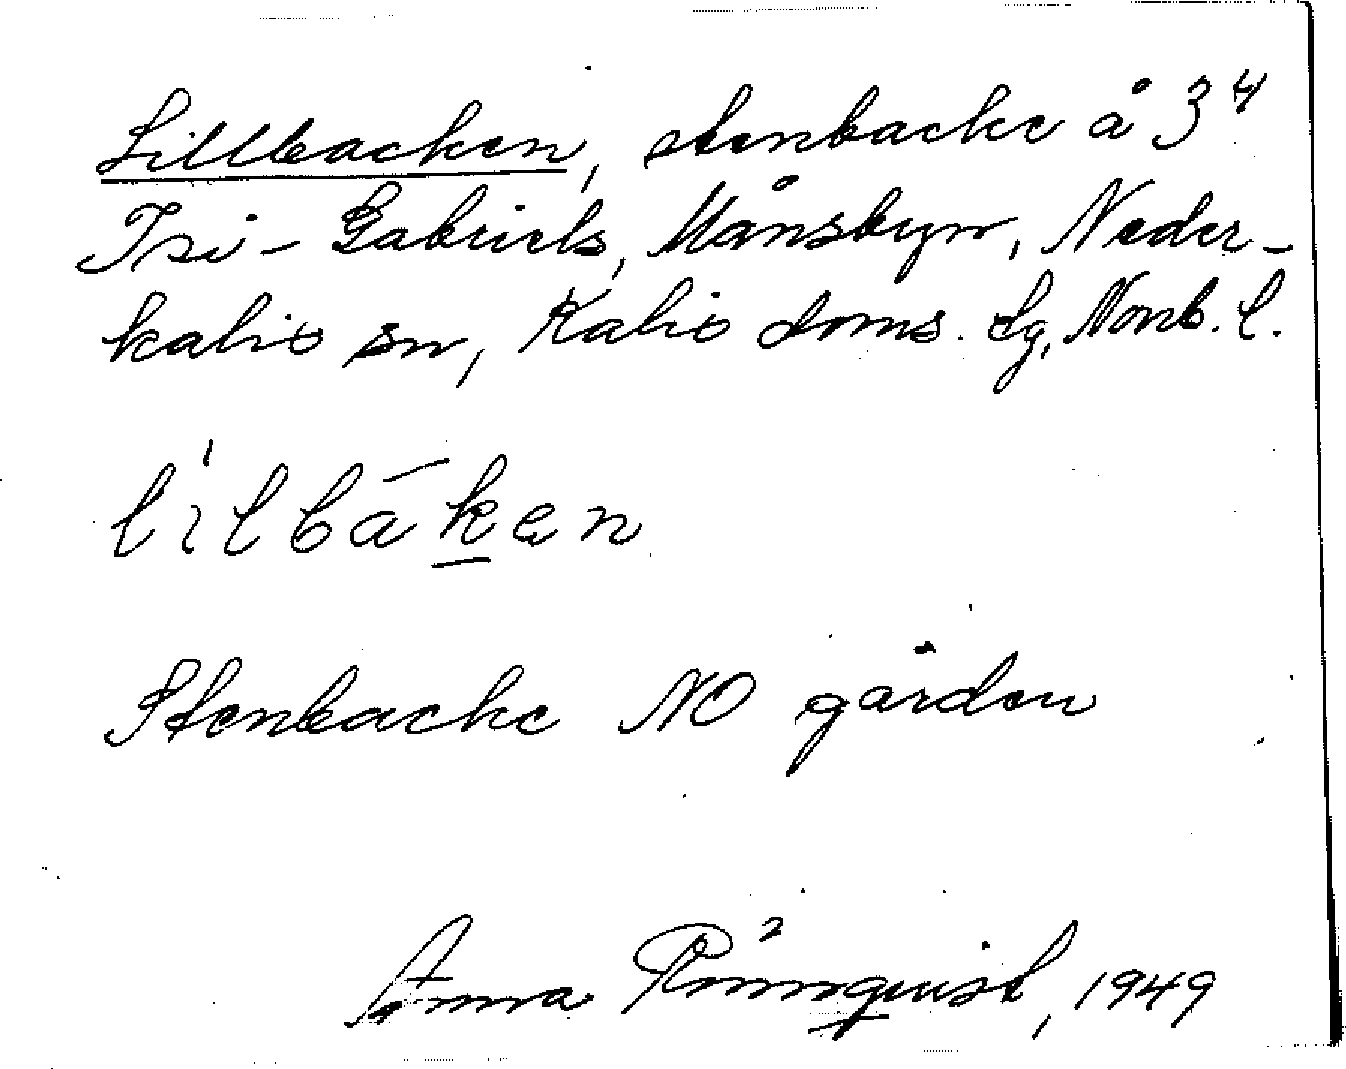 Lillbacken, stenbacke å 3⁴
Isi-Gabriels, Månsbyn, Neder-
kalix sn, Kalix doms. lg, Norrb. l.
lilbàken
Stenbacke NO gården
Anna Rönnquist, 1949